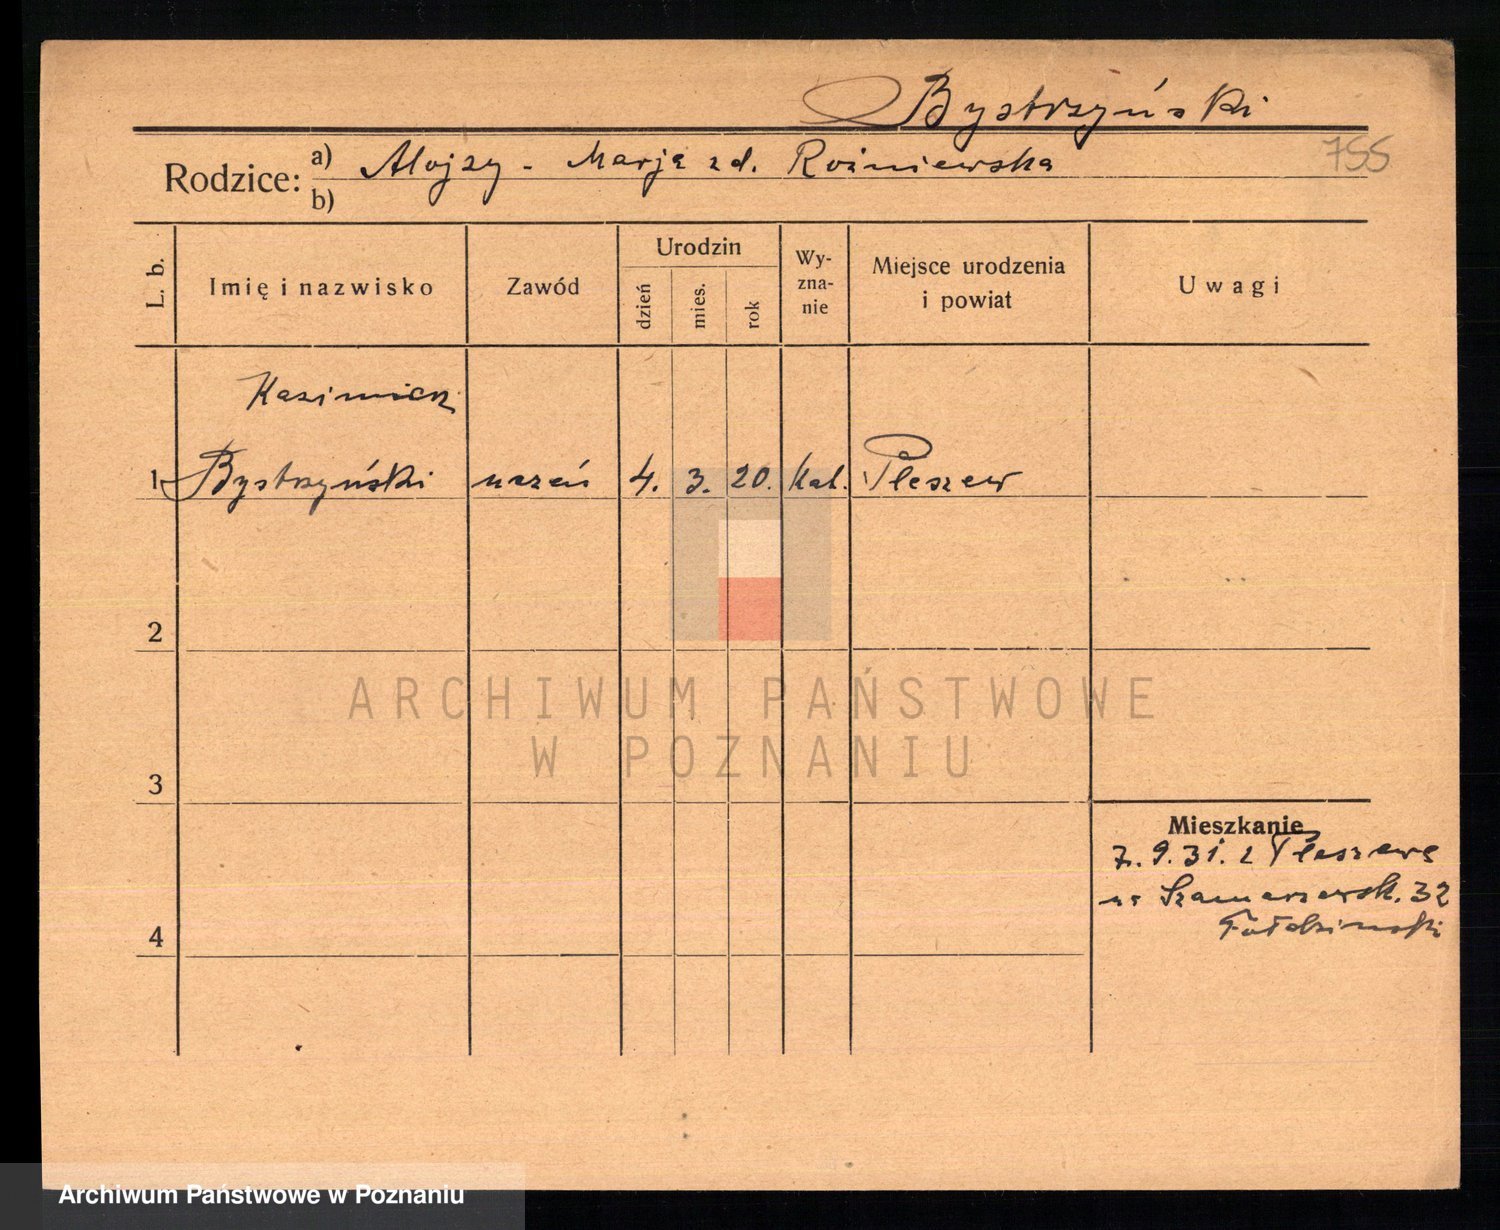 Bystrzyński
755
Rodzice: a) Alojzy - Marja zd. Roźniewska
b)
L. b.
Imię i nazwisko
Zawód
Urodzin
dzień
mies.
rok
Wy-
zna-
nie
Miejsce urodzenia
i powiat
Uwagi
Kazimierz
1 Bystrzyński uczeń 4. 3. 20. Kat. Pleszew
2
ARCHIWUM PAŃSTWOWE
W POZNANIU
3
Mieszkanie
7. 9. 31. z Pleszewa
na Szamarzewsk. 32
4
Archiwum Państwowe w Poznaniu